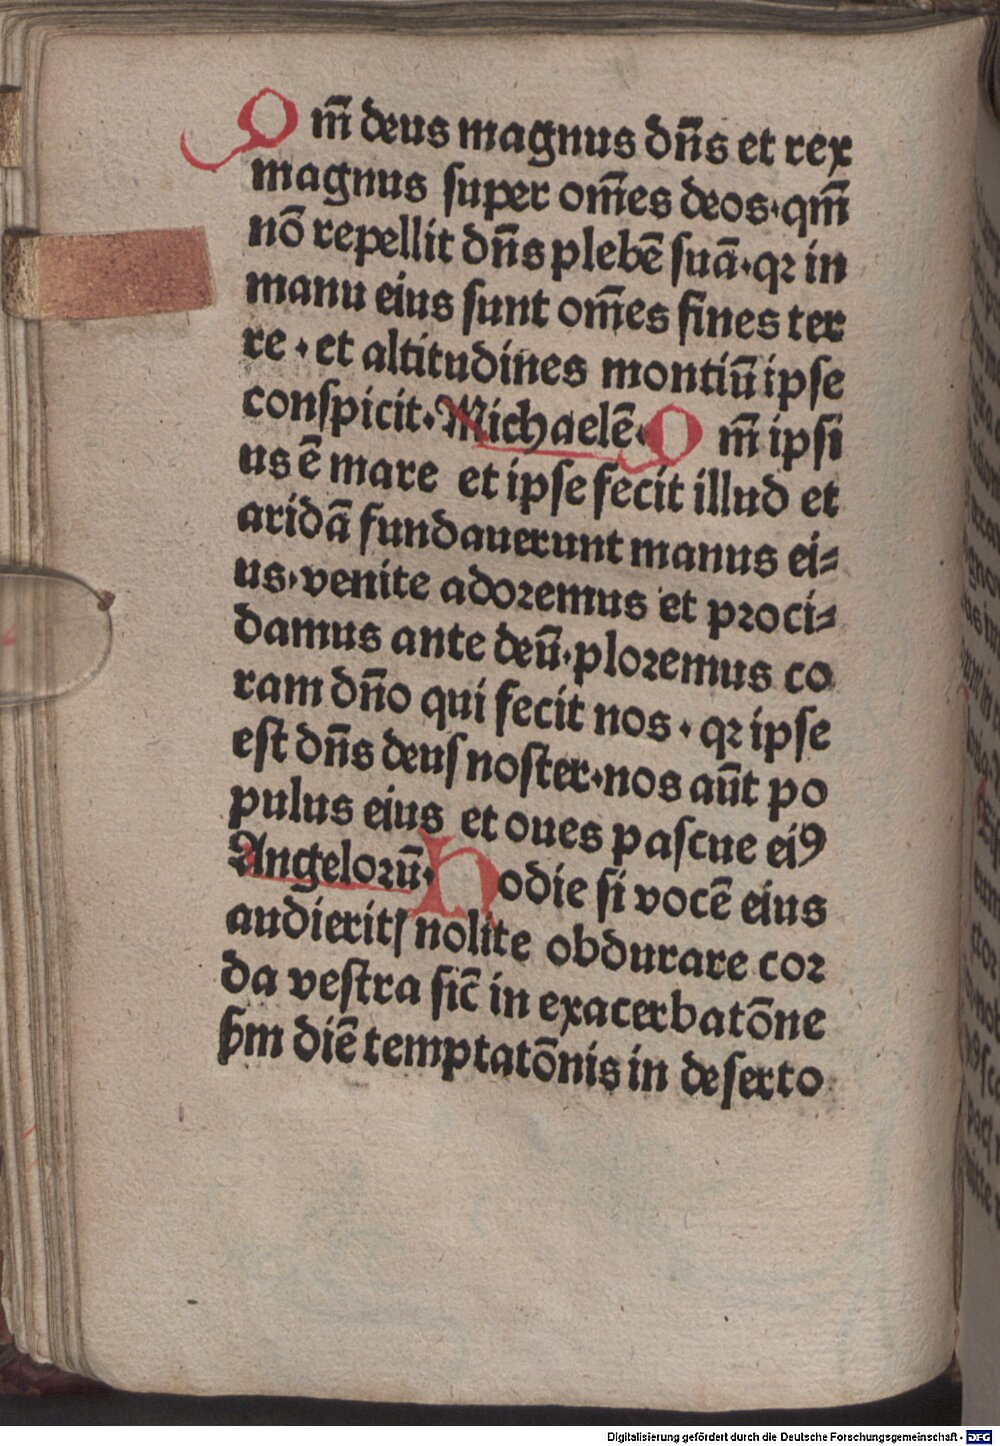 Qm̄ deus magnus dn̄s et rex
magnus super om̄es deos·qm̄
nō repellit dn̄s plebē suā·qꝛ in
manu eius sunt om̄es fines ter
re·et altitudines montiū ipse
conspicit·Michaelē·Qm̄ ipsi
us ē mare et ipse fecit illud et
aridā fundauerunt manus ei⸗
us·venite adoꝛemus et pꝛoci⸗
damus ante deū·ploꝛemus co
ram dn̄o qui fecit nos·qꝛ ipse
est dn̄s deus noster·nos aūt po
pulus eius et oues pascue eiꝰ
Angeloꝛū·Hodie si vocē eius
audieritʃ nolite obdurare coꝛ
da vestra sic̄ in exacerbatōne
ẜm diē temptatōnis in deserto
Digitalisierung gefördert durch die Deutsche Forschungsgemeinschaft - DFG